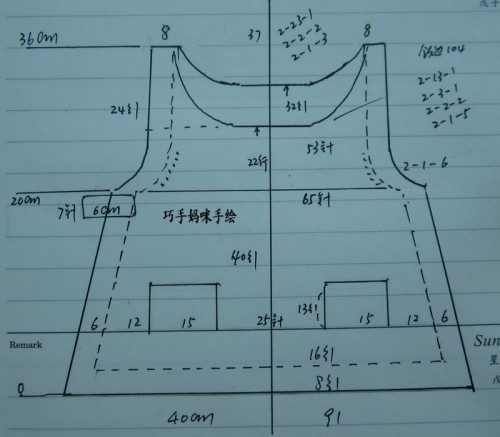 8 37 2-23-1 8
2-2-2
2-1-3
36cm
104
2-13-1
2-3-1
2-2-2
2-1-5
24引
32引
22行
53针
2-1-6
20cm
65针
7针 6cm
巧手妈咪手绘
40引
13引
6 12 15 25针 15 12 6
Remark
Sun
16引
0
8引
40cm 91